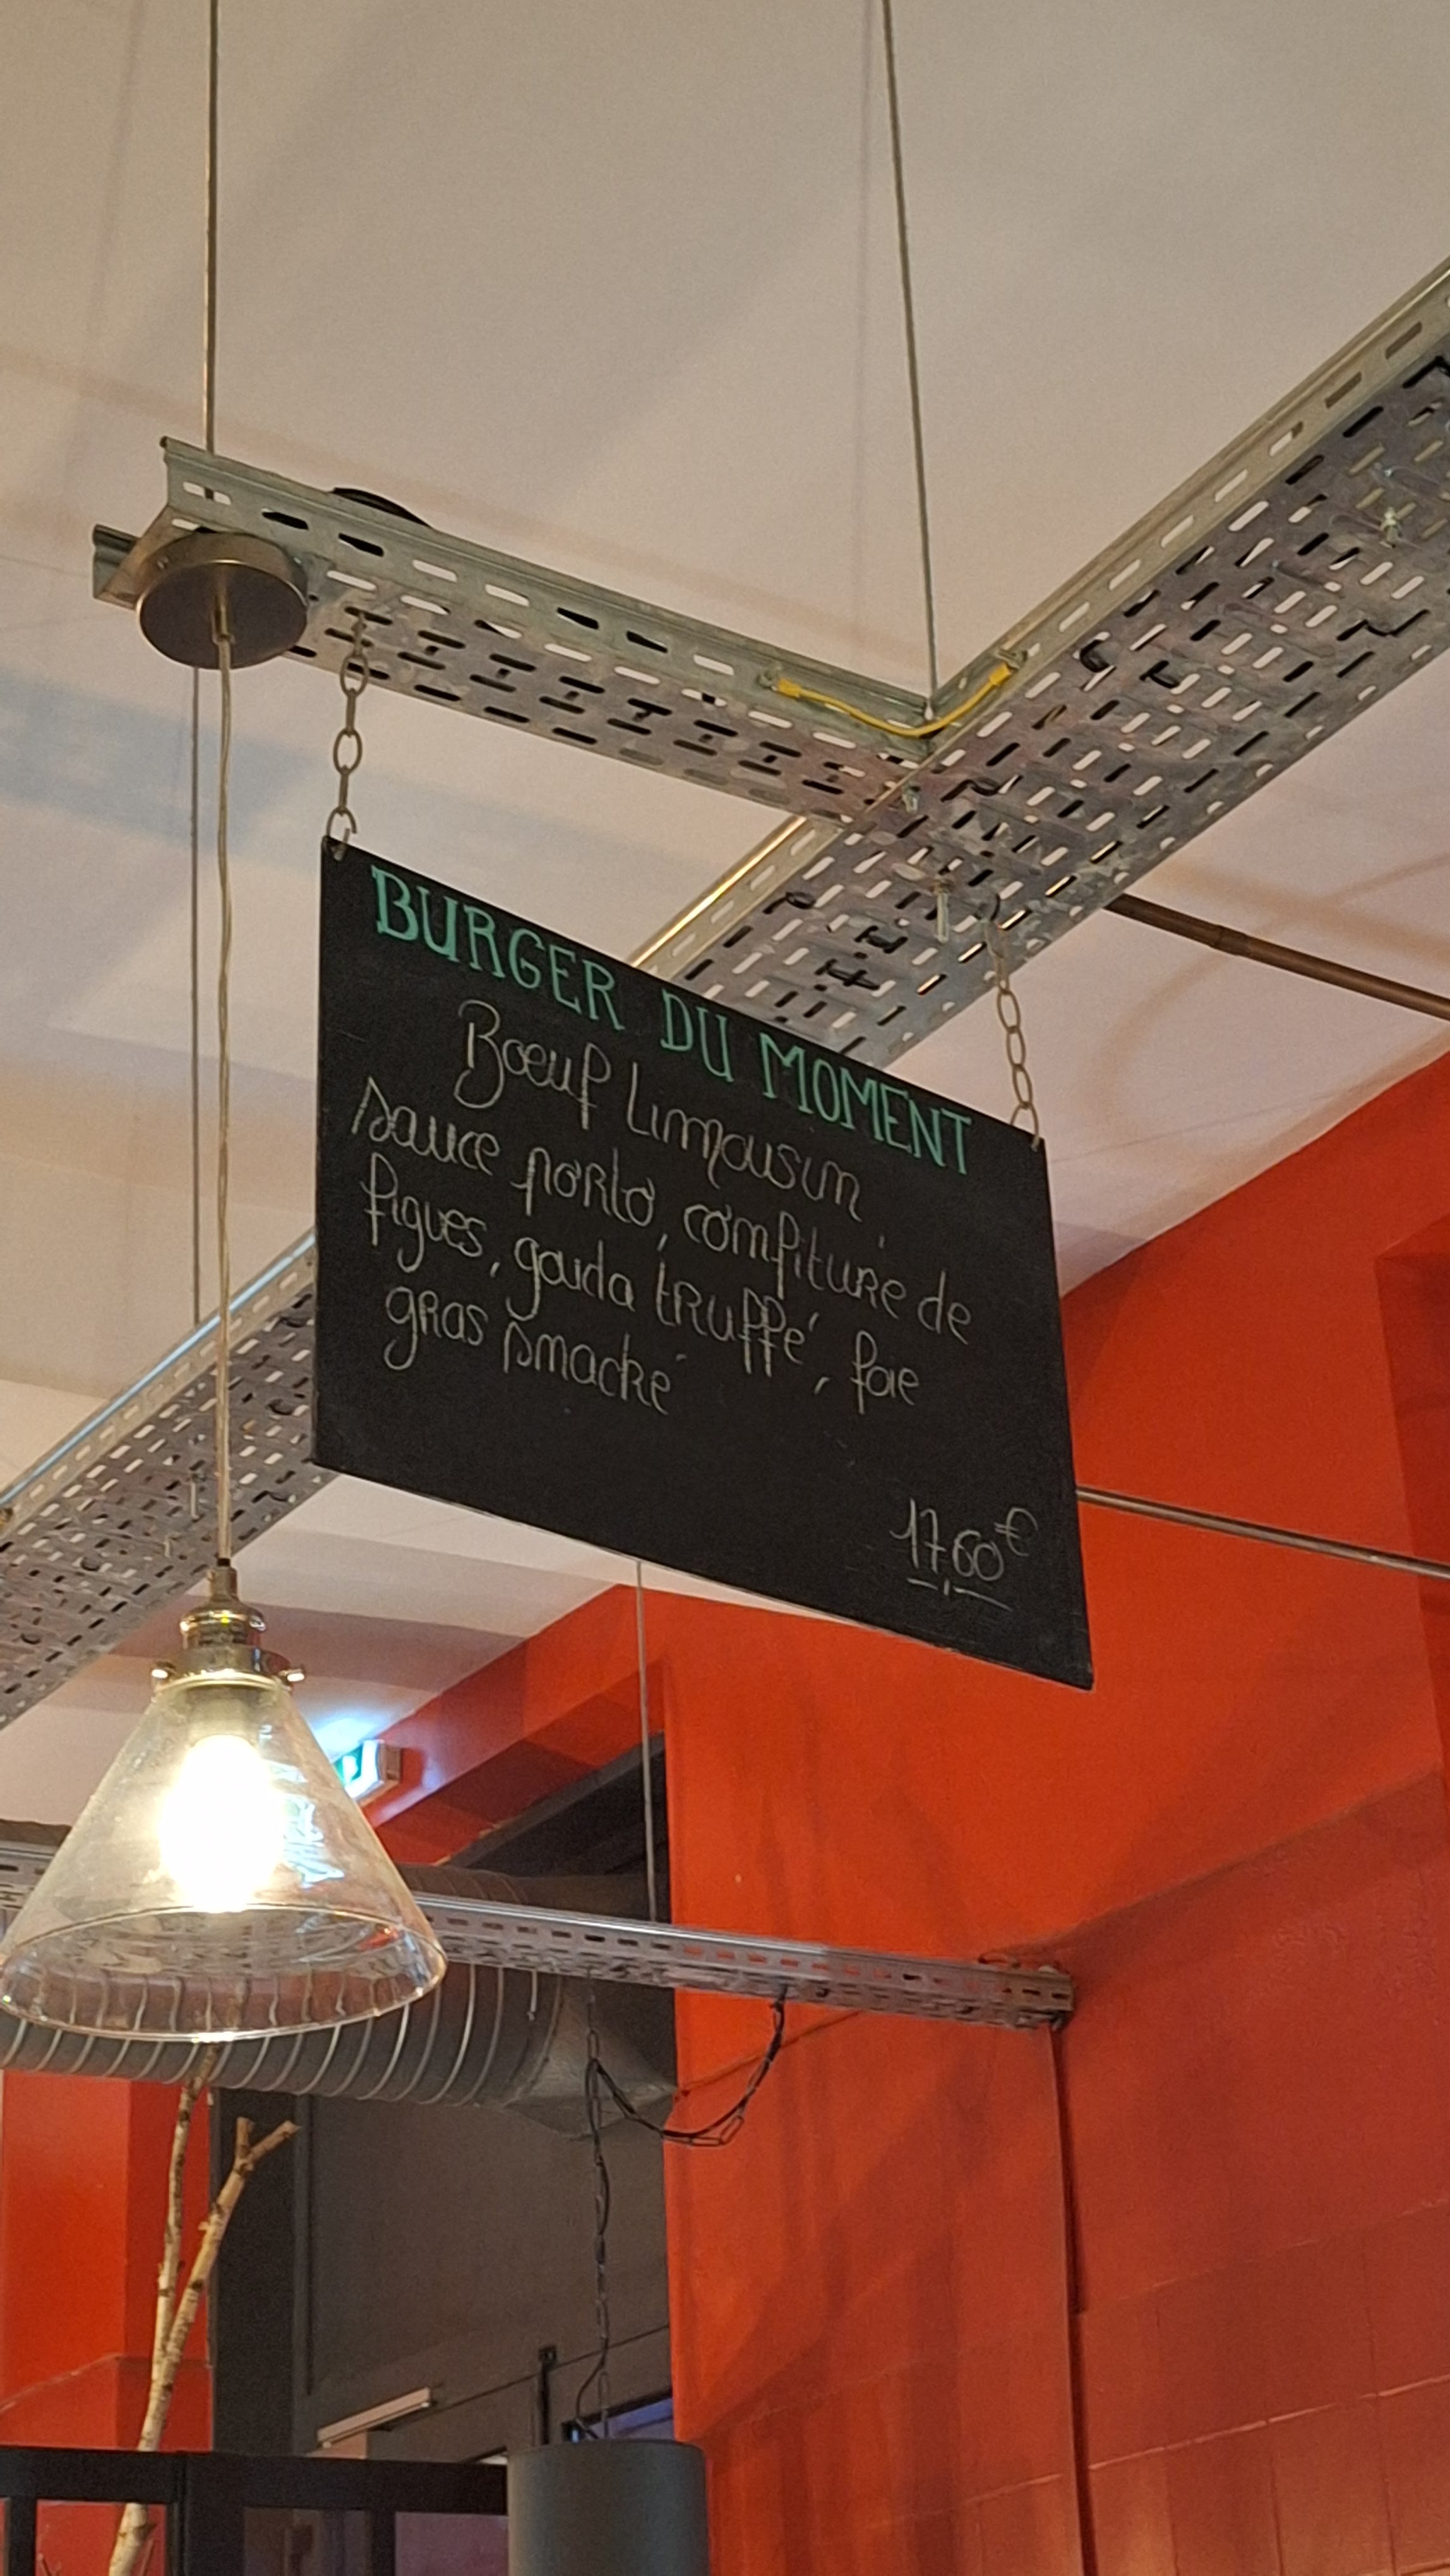 BURGER DU MOMENT
Bœuf Limousin,
sauce porto, confiture de
figues, gouda truffé, foie
gras smacké
17,60€